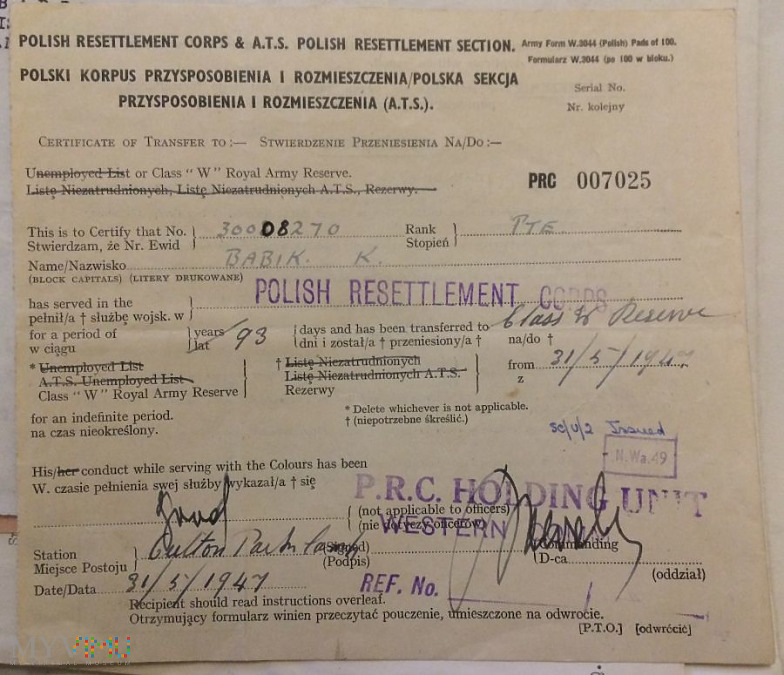 POLISH RESETTLEMENT CORPS & A.T.S. POLISH RESETTLEMENT SECTION.
Army Form W.3044 (Polish) Pads of 100.
Formularz W.3044 (po 100 w bloku.)
POLSKI KORPUS PRZYSPOSOBIENIA I ROZMIESZCZENIA/POLSKA SEKCJA
PRZYSPOSOBIENIA I ROZMIESZCZENIA (A.T.S.).
Serial No.
Nr. kolejny
CERTIFICATE OF TRANSFER TO:— STWIERDZENIE PRZENIESIENIA NA/DO:—
Unemployed List or Class "W" Royal Army Reserve.
Listę Niezatrudnionych, Listę Niezatrudnionych A.T.S., Rezerwy.
PRC 007025
This is to Certify that No. 30008270 Rank PTE
Stwierdzam, że Nr. Ewid Stopień
Name/Nazwisko BABIK. K.
(BLOCK CAPITALS) (LITERY DRUKOWANE)
POLISH RESETTLEMENT CORPS
has served in the
pełnił/a † służbę wojsk. w
for a period of years 93 days and has been transferred to Class W Reserve
w ciągu lat dni i został/a † przeniesiony/a † na/do †
* Unemployed List † Listę Niezatrudnionych from 31/5/1947
A.T.S. Unemployed List Listę Niezatrudnionych A.T.S. z
Class "W" Royal Army Reserve Rezerwy
for an indefinite period. * Delete whichever is not applicable.
na czas nieokreślony. † (niepotrzebne skreślić.)
SC/U/2 Issued
N.Wa.49
His/her conduct while serving with the Colours has been
W. czasie pełnienia swej służby wykazał/a † się
P.R.C. HOLDING UNIT
Good (not applicable to officers)
(nie dotyczy oficerów)
WESTERN
Station (Signed) Commanding
Miejsce Postoju (Podpis) D-ca
(oddział)
Date/Data 31/5/1947
REF. No.
Recipient should read instructions overleaf.
Otrzymujący formularz winien przeczytać pouczenie, umieszczone na odwrocie.
[P.T.O.] [odwrócić]